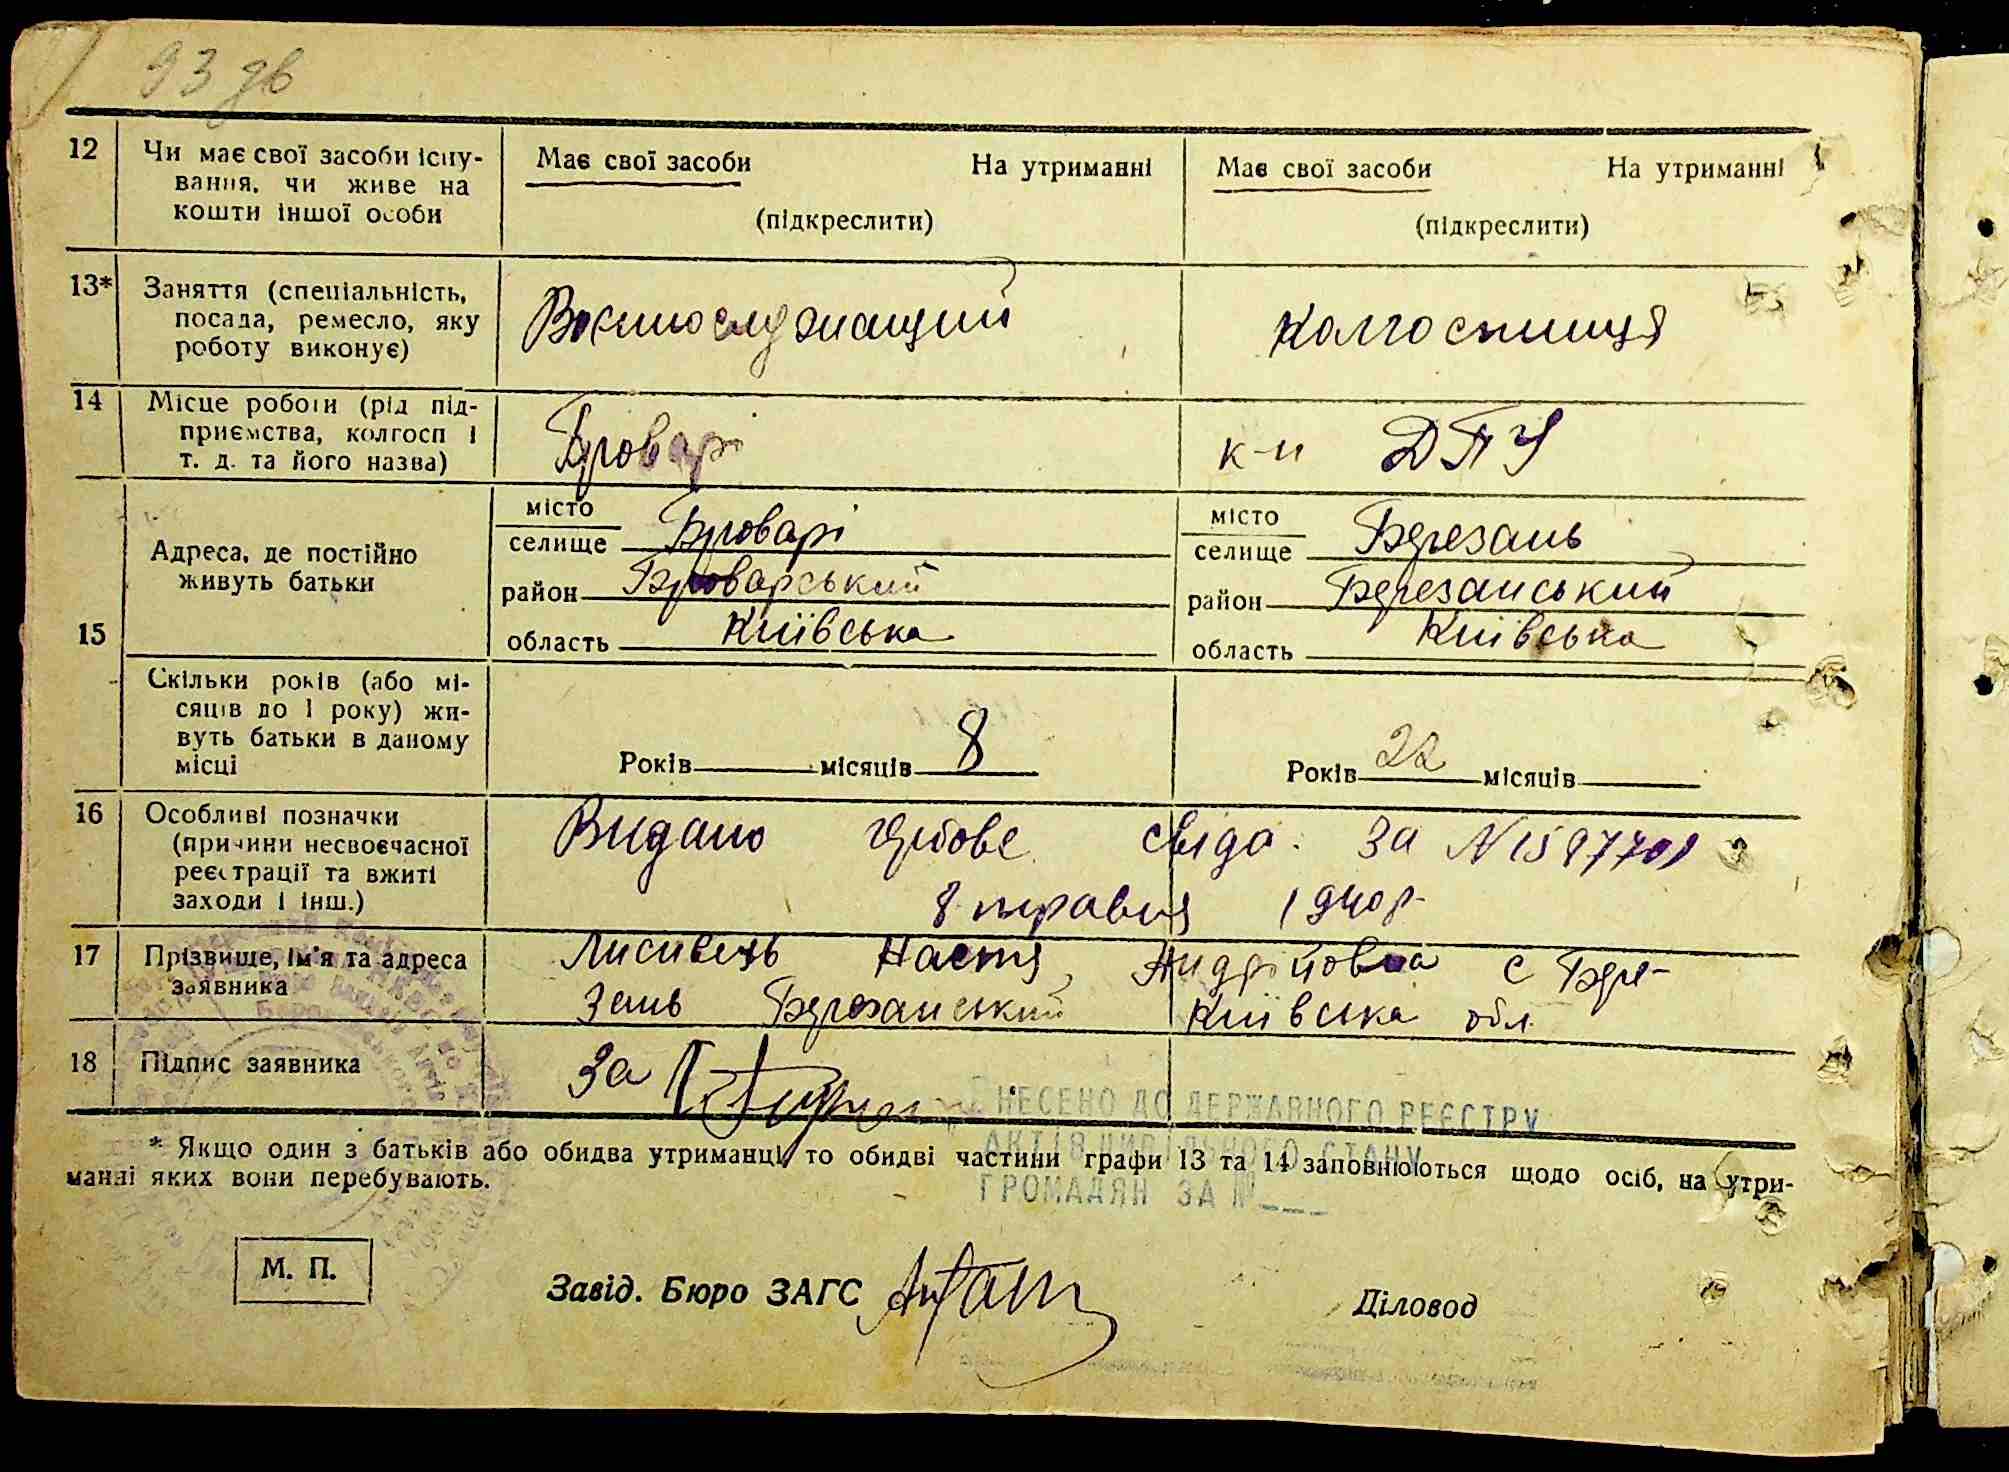 93 дв
12 Чи має свої засоби існу-
вання, чи живе на
кошти іншої особи
Має свої засоби На утриманні
(підкреслити)
Має свої засоби На утриманні
(підкреслити)
13* Заняття (спеціальність,
посада, ремесло, яку
роботу виконує)
Воєннослужащий
Колгоспниця
14 Місце роботи (рід під-
приємства, колгосп і
т. д. та його назва)
Броварі
к-п ДПУ
15 Адреса, де постійно
живуть батьки
місто
селище Броварі
район Броварський
область Київська
місто
селище Березань
район Березанський
область Київська
Скільки років (або мі-
сяців до 1 року) жи-
вуть батьки в даному
місці
Років місяців 8
Років 22 місяців
16 Особливі позначки
(причини несвоєчасної
реєстрації та вжиті
заходи і інш.)
Видано свідо. за N 1597701
8 травня 1940р.
17 Прізвище, ім'я та адреса
заявника
Лисивець Настя Андрійовна с Бере-
зань Березанський Київська обл.
18 Підпис заявника
За
ВНЕСЕНО ДО ДЕРЖАВНОГО РЕЄСТРУ
АКТІВ ЦИВІЛЬНОГО СТАНУ
ГРОМАДЯН ЗА №
* Якщо один з батьків або обидва утриманці, то обидві частини графи 13 та 14 заповнюються щодо осіб, на утри-
манні яких вони перебувають.
М. П.
Завід. Бюро ЗАГС
Діловод